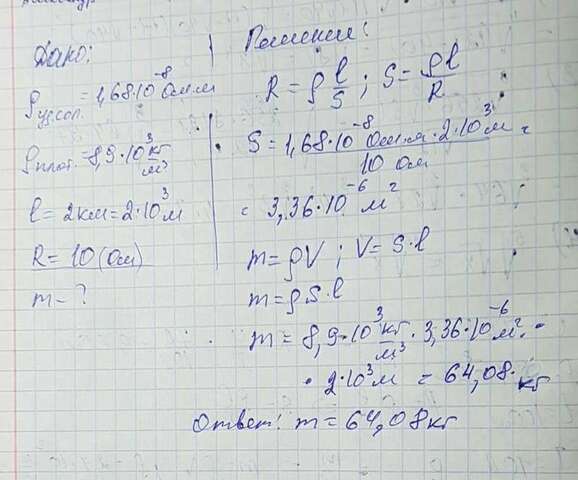 Дано:
ρуд.сопр. = 1,68·10⁻⁸ Ом·м
ρплот. = 8,9·10³ кг/м³
l = 2км = 2·10³ м
R = 10 (Ом)
m - ?
Решение:
R = ρ l/S ; S = ρl/R
S = 1,68·10⁻⁸ Ом·м · 2·10³ м / 10 Ом =
= 3,36·10⁻⁶ м²
m = ρV ; V = S·l
m = ρ·S·l
m = 8,9·10³ кг/м³ · 3,36·10⁻⁶ м² ·
· 2·10³ м = 64,08 · кг
Ответ: m = 64,08 кг